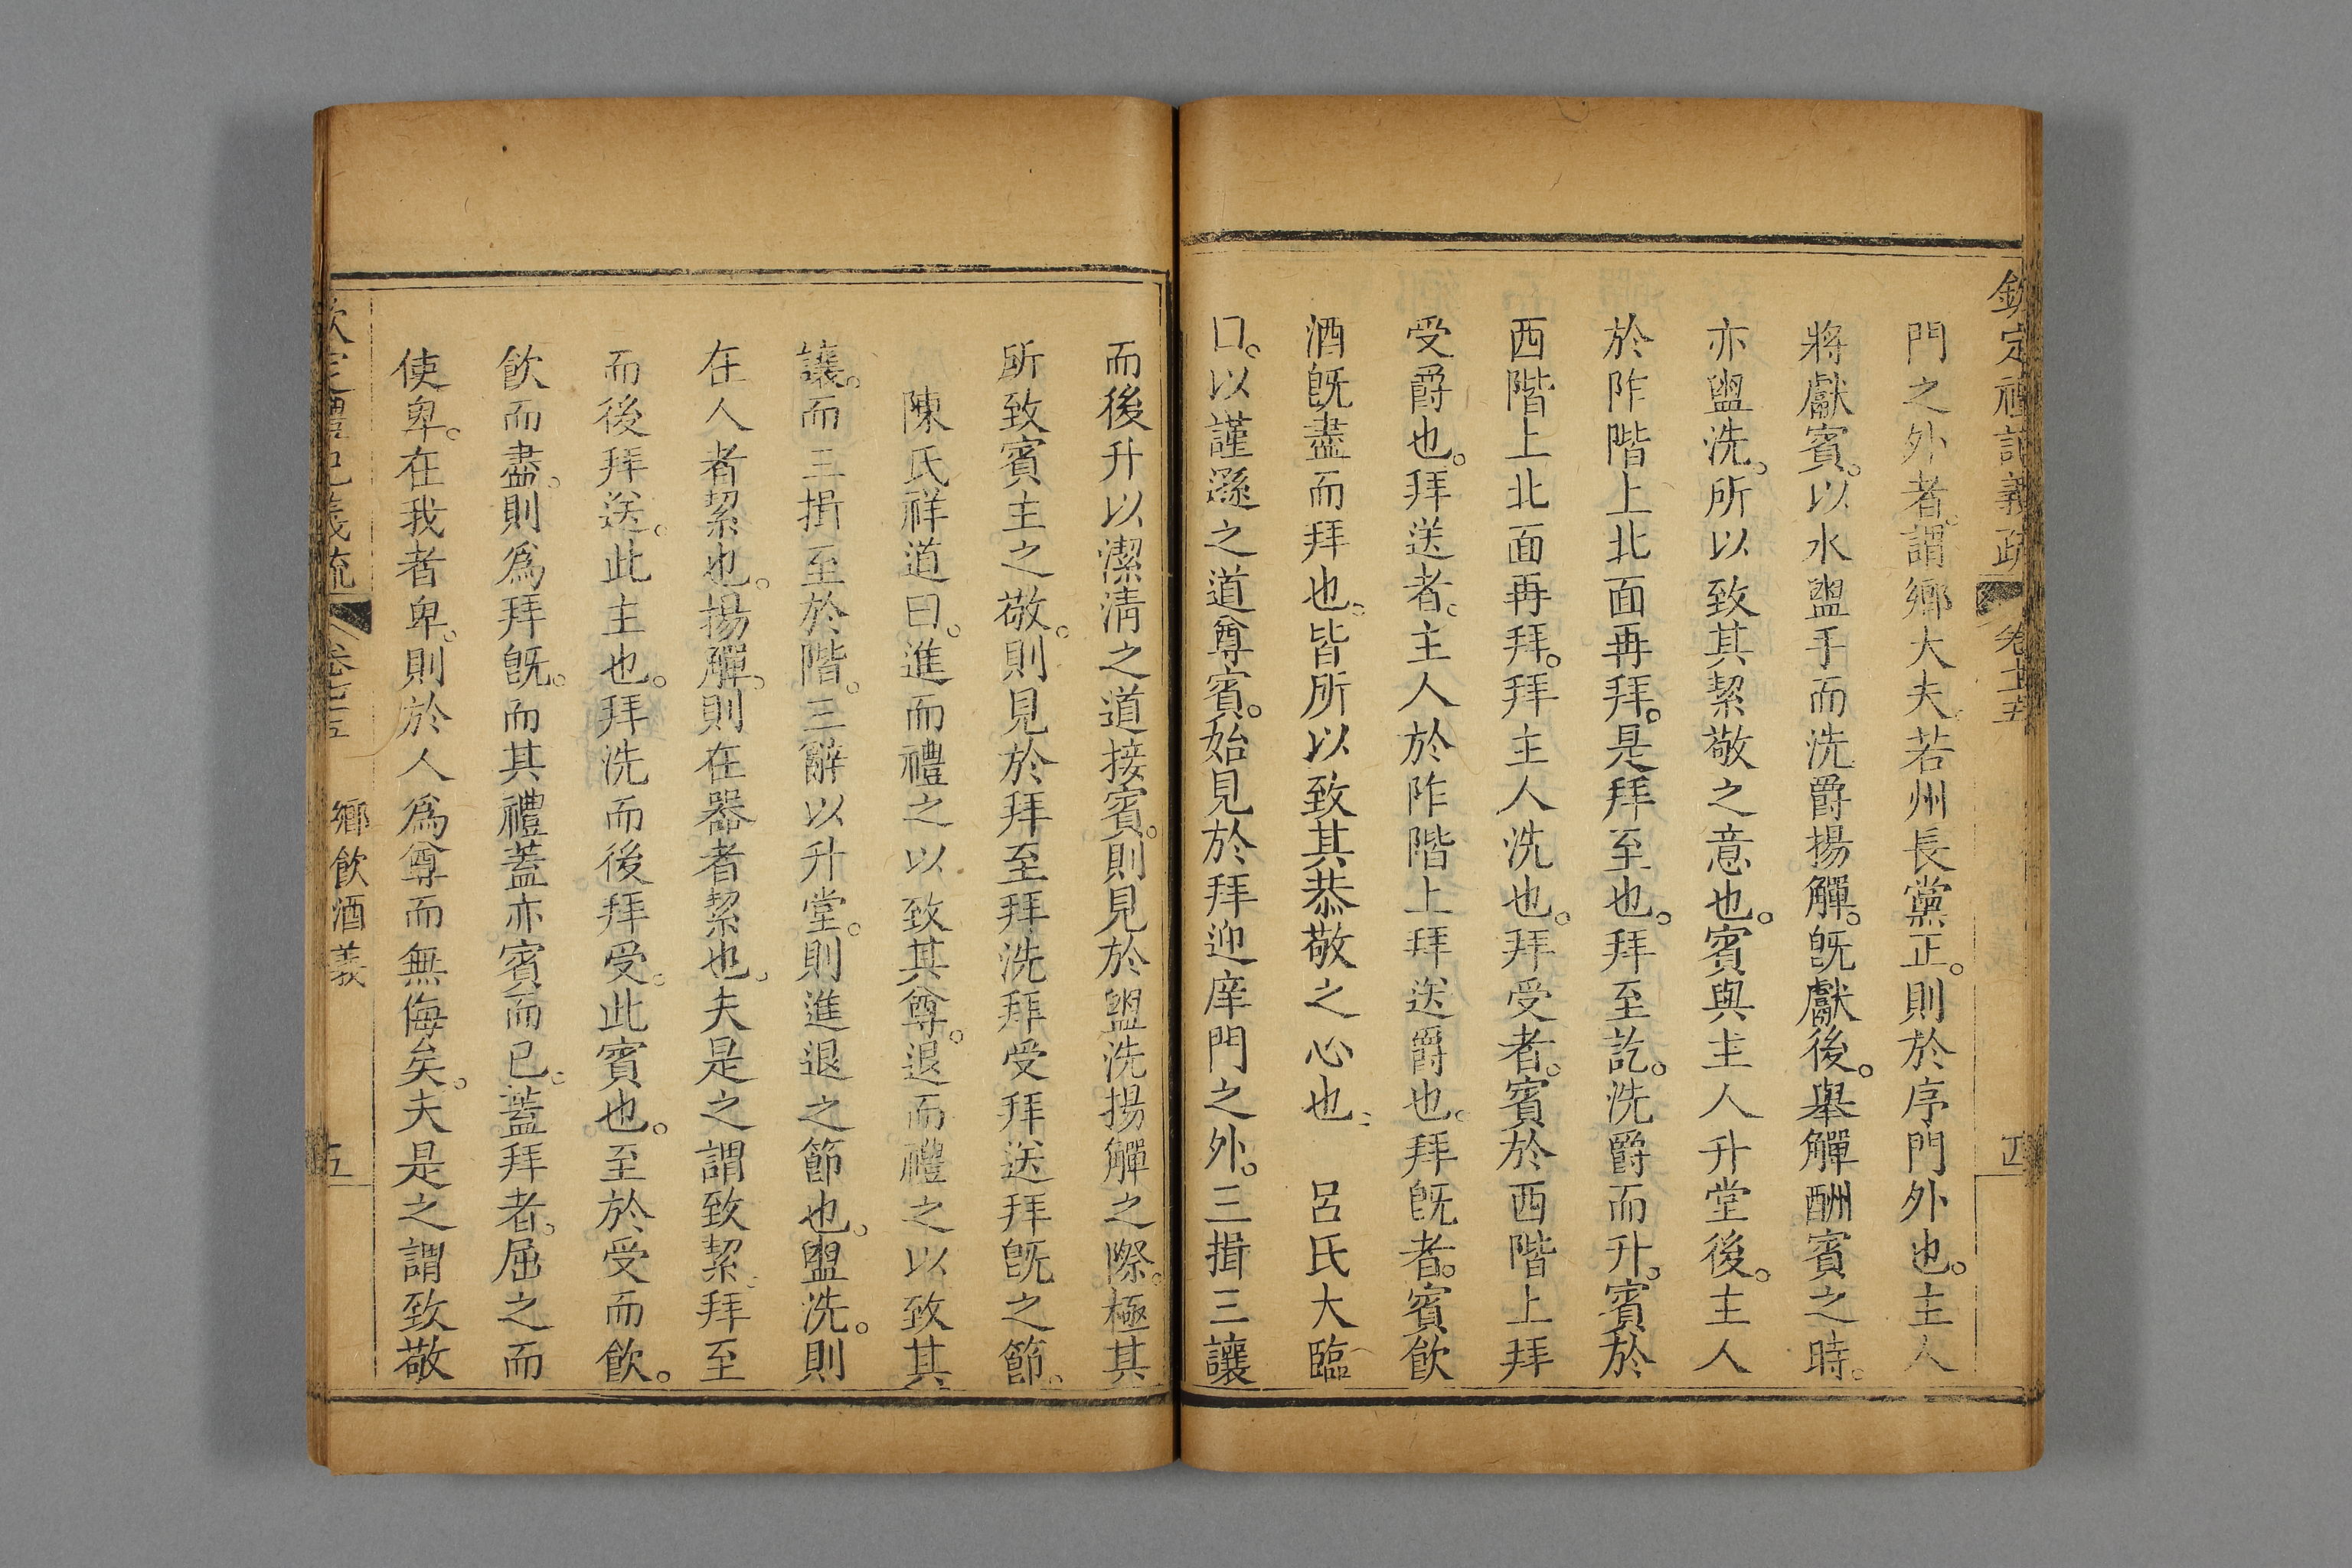 欽定禮記義疏 卷七十五
門之外者。謂鄉大夫。若州長黨正。則於序門外也。主人
將獻賓。以水盥手而洗爵揚觶。旣獻後。舉觶酬賓之時。
亦盥洗。所以致其絜敬之意也。賓與主人升堂後。主人
於阼階上北面再拜。是拜至也。拜至訖。洗爵而升。賓於
西階上北面再拜。拜主人洗也。拜受者。賓於西階上拜
受爵也。拜送者。主人於阼階上拜送爵也。拜旣者。賓飮
酒旣盡而拜也。皆所以致其恭敬之心也。 呂氏大臨
口。以謹遜之道尊賓。始見於拜迎庠門之外。三揖三讓
而後升以潔淸之道接賓。則見於盥洗揚觶之際。極其
所致賓主之敬。則見於拜至拜洗拜受拜送拜旣之節。
陳氏祥道曰。進而禮之以致其尊。退而禮之以致其
讓。而三揖至於階。三辭以升堂。則進退之節也。盥洗。則
在人者絜也。揚觶。則在器者絜也。夫是之謂致絜。拜至
而後拜送。此主也。拜洗而後拜受。此賓也。至於受而飮。
飮而盡。則爲拜旣。而其禮蓋亦賓而已。蓋拜者。屈之而
使卑。在我者卑。則於人爲尊而無侮矣。夫是之謂致敬
欽定禮記義疏 卷七十五 鄉飮酒義 五